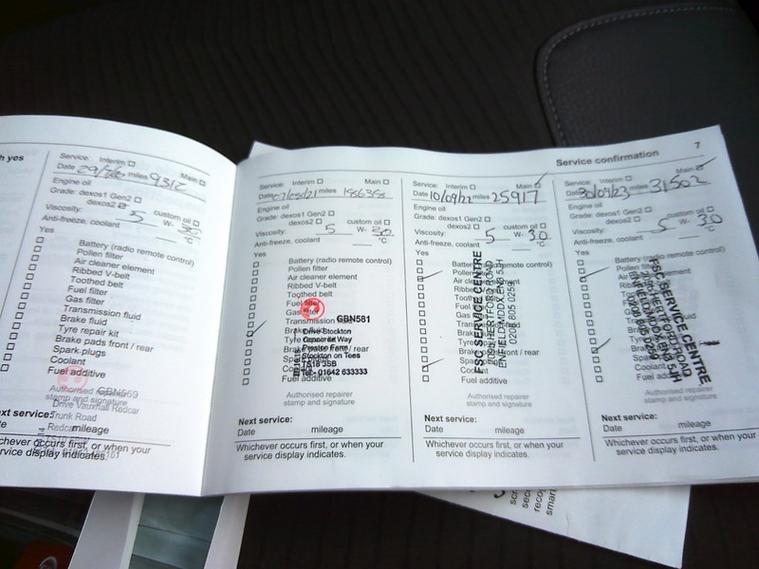 h yes
Service: Interim Main
Date miles 9312
Engine oil
Grade: dexos1 Gen2
dexos2 custom oil
Viscosity: 5 W- 30
Anti-freeze, coolant °C
Yes
Battery (radio remote control)
Pollen filter
Air cleaner element
Ribbed V-belt
Toothed belt
Fuel filter
Gas filter
Transmission fluid
Brake fluid
Tyre repair kit
Brake pads front / rear
Spark-plugs
Coolant
Fuel additive
Authorised repairer
stamp and signature
Drive Vauxhall Redcar
Trunk Road
Redcar
ext service:
mileage
hever occurs first, or when your
rvice display indicates.
Service confirmation 7
Service: Interim Main
Date miles
Engine oil
Grade: dexos1 Gen2
dexos2 custom oil
Viscosity: 5 W- 30
Anti-freeze, coolant °C
Yes
Battery (radio remote control)
Pollen filter
Air cleaner element
Ribbed V-belt
Toothed belt
Fuel filter
Gas filter
Transmission fluid
Brake fluid
Tyre
Brake pads front / rear
Spark-plugs
Coolant
Fuel additive
GBN581
Drive Stockton
Concorde Way
Preston Farm
Stockton on Tees
TS18 3SB
Tel:- 01642 633333
Authorised repairer
stamp and signature
Next service:
Date mileage
Whichever occurs first, or when your
service display indicates.
Service: Interim Main
Date 10/09/22 miles 25917
Engine oil
Grade: dexos1 Gen2
dexos2 custom oil
Viscosity: 5 W- 30
Anti-freeze, coolant °C
Yes
Battery (radio remote control)
Pollen filter
Air cleaner element
Ribbed V-belt
Toothed belt
Fuel filter
Gas filter
Transmission fluid
Brake fluid
Tyre repair kit
Brake pads front / rear
Spark-plugs
Coolant
Fuel additive
FSC SERVICE CENTRE
HERTFORD ROAD
ENFIELD MIDDX EN3 5JH
0208 805 0259
Authorised repairer
stamp and signature
Next service:
Date mileage
Whichever occurs first, or when your
service display indicates.
Service: Interim Main
Date 30/09/23 miles 31502
Engine oil
Grade: dexos1 Gen2
dexos2 custom oil
Viscosity: 5 W- 30
Anti-freeze, coolant °C
Yes
Battery (radio remote control)
Pollen filter
Air cleaner element
Ribbed V-belt
Toothed belt
Fuel filter
Gas filter
Transmission fluid
Brake fluid
Tyre
Brake pads front / rear
Spark-plugs
Coolant
Fuel additive
FSC SERVICE CENTRE
HERTFORD ROAD
Authorised repairer
stamp and signature
Next service:
Date mileage
Whichever occurs first, or when your
service display indicates.